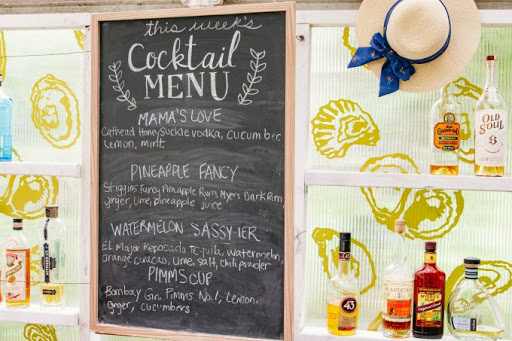 this week's
Cocktail
MENU
MAMA'S LOVE
Cathead HoneySuckle vodka, cucumber,
Lemon, mint
PINEAPPLE FANCY
Stiggins Fancy Pineapple Rum, Myers Dark Rum,
ginger, lime, pineapple juice
WATERMELON SASSY-IER
EL Major Reposado Tequila, Watermelon,
orange curacao, Lime, salt, chili powder
PIMMS CUP
Bombay Gin, Pimms No. 1, Lemon,
Ginger, cucumbers
OLD
SOUL
43